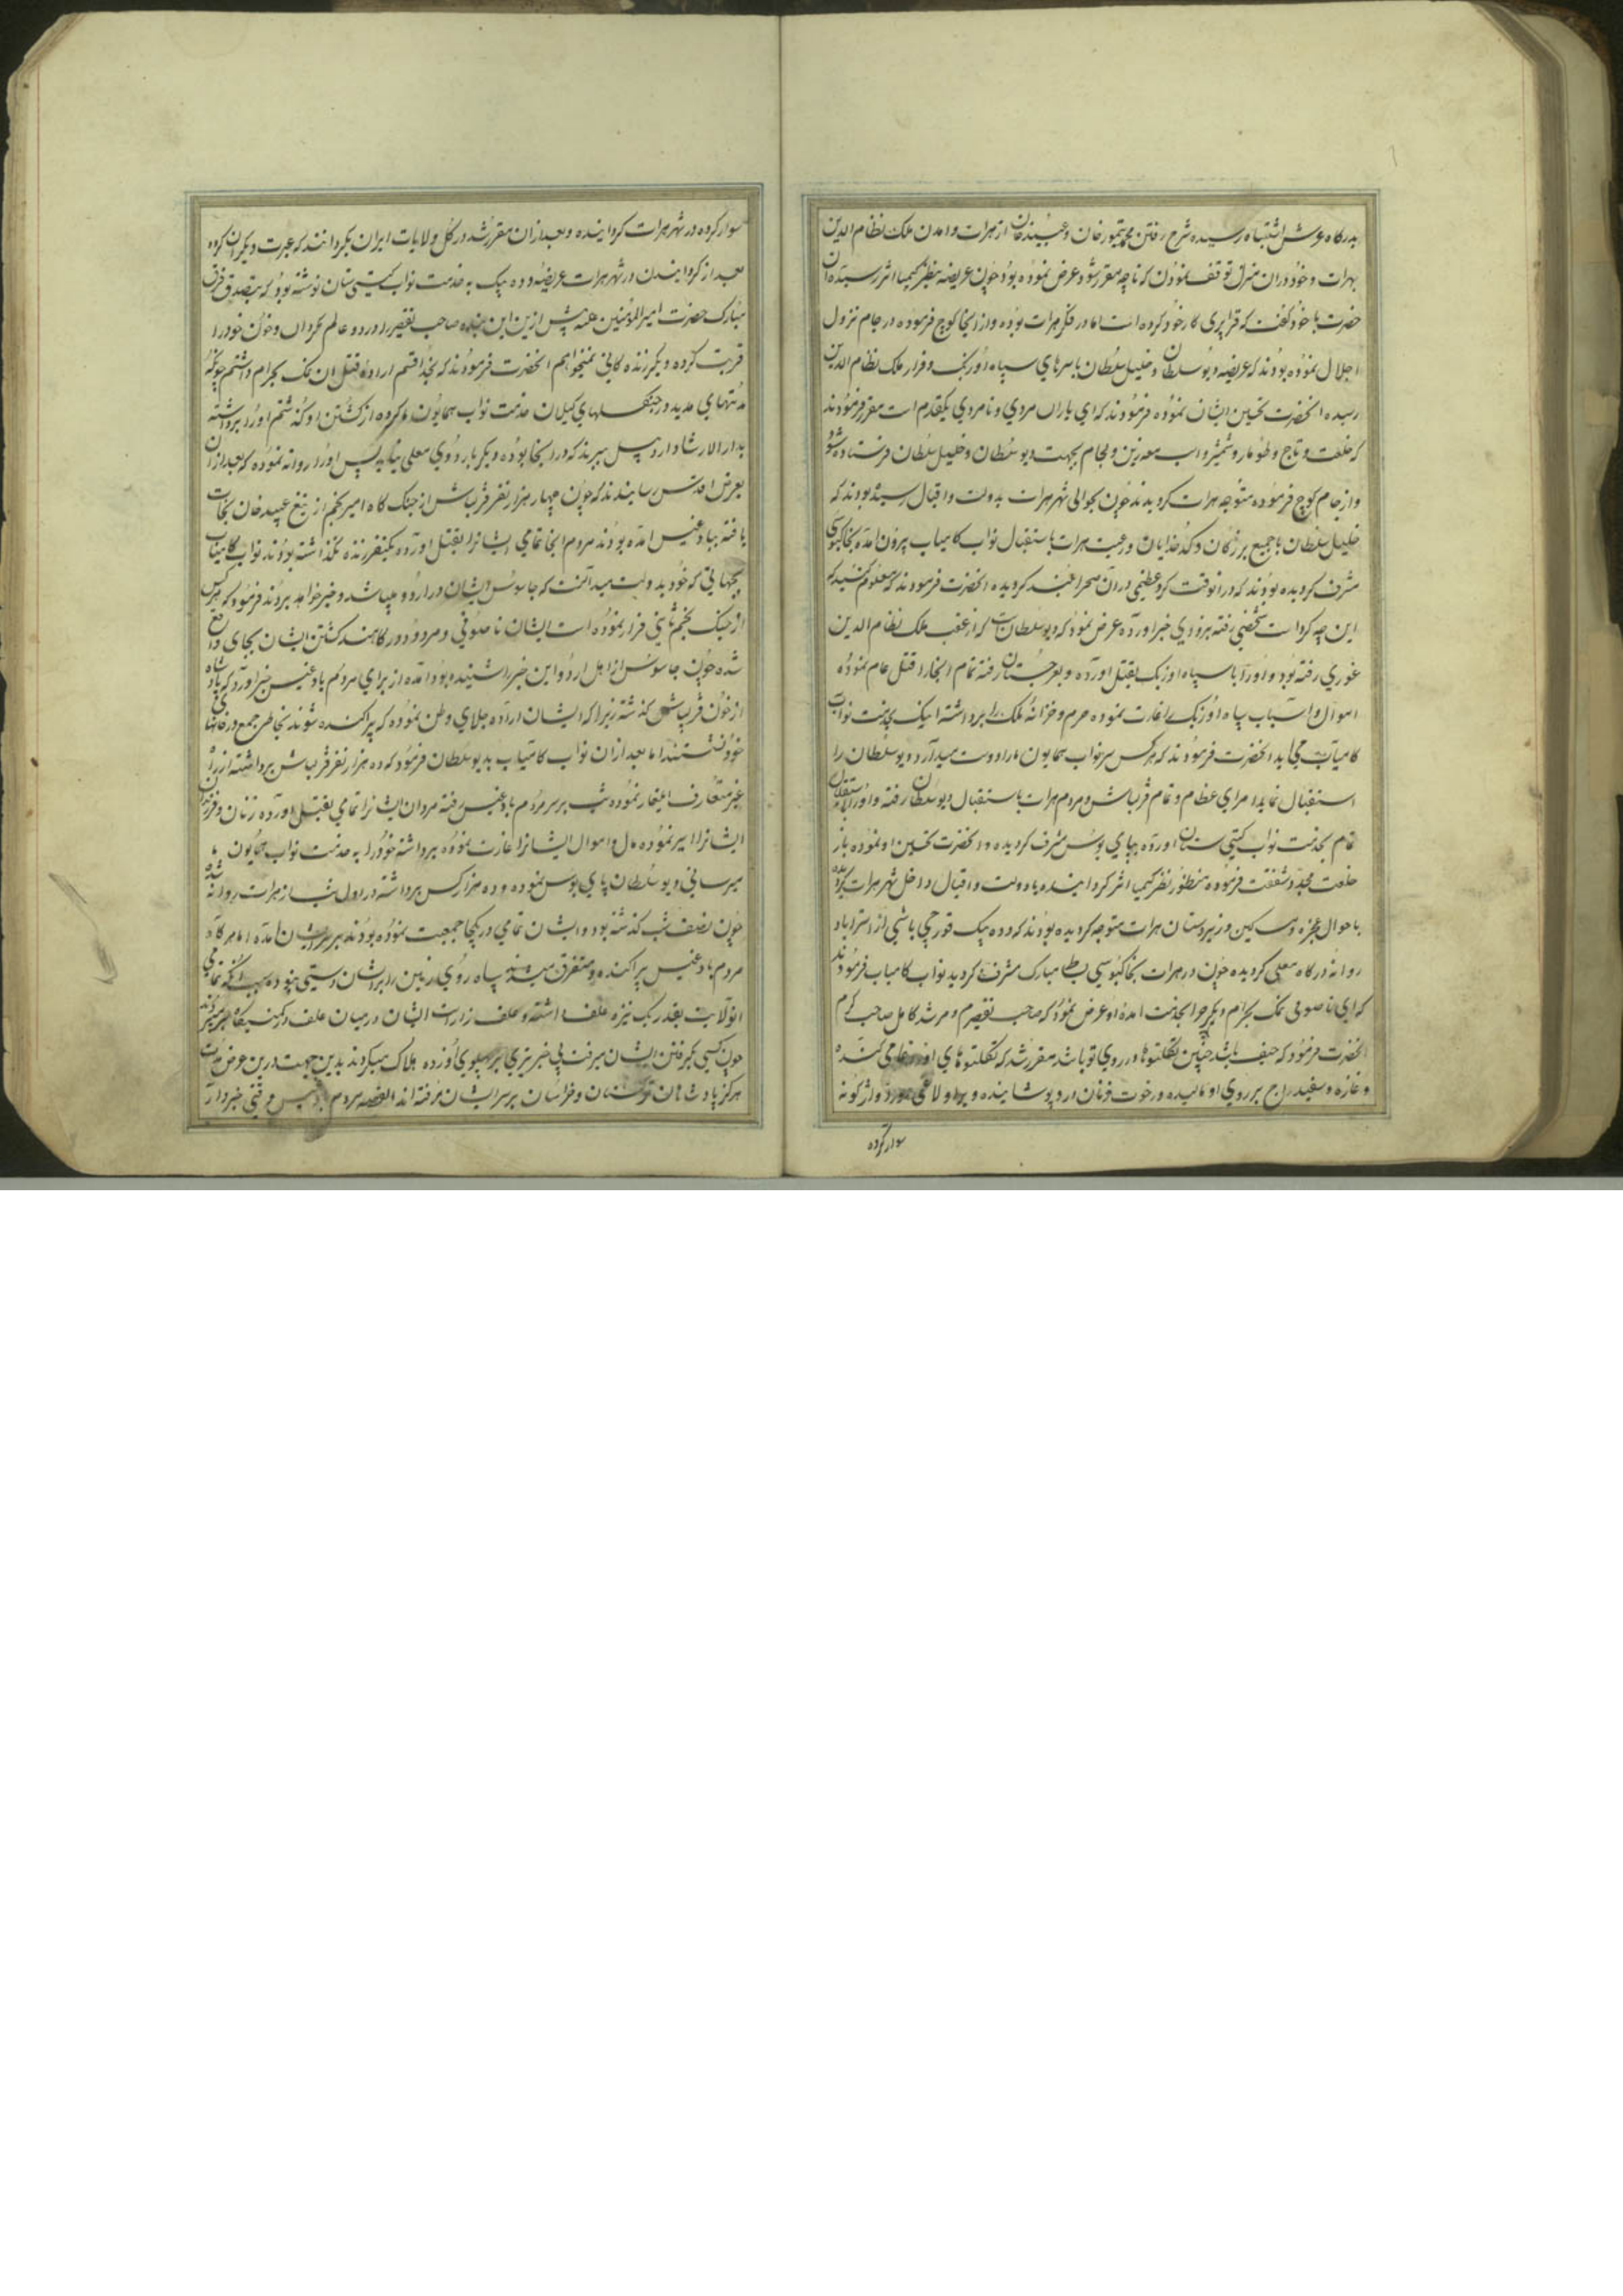 بدرگاه عرش اشتباه رسیده شرح رفتن محمد تیمور خان و عبید خان از هرات و امدن ملک نظام الدین
بهرات و خود در ان منزل توقف نمودن که تا چه مقرر شود عرض نموده بود چون عریضه بنظر کیمیا اثر رسید ان
حضرت با خود گفت که قراپری کار خود کرده است اما در فکر هرات بوده و از انجا کوچ فرموده در جام نزول
اجلال نموده بودند که عریضه دیو سلطان و خلیل سلطان با سرهای سپاه اوزبک و فرار ملک نظام الدین
رسیده انحضرت تحسین ایشان نموده فرمودند که ای یاران مردی و نامردی یکقدم است مقرر فرمودند
که خلعت و تاج و طومار و شمشیر و اسب معه زین و لجام بجهت دیو سلطان و خلیل سلطان فرستاده شود
و از جام کوچ فرموده متوجه هرات کردیدند چون بحوالی شهر هرات بدولت و اقبال رسیده بودند که
خلیل سلطان با جمیع بزرگان و کدخدایان و رعیت هرات باستقبال نواب کامیاب بیرون امده بخاکبوسی
مشرف کردیده بودند که در انوقت کرد عظیمی در ان صحرا بلند کردیده انحضرت فرمودند که معلوم کنید که
این چه کرد است شخصی رفته بزودی خبر اورده عرض نمود که دیو سلطان است که از عقب ملک نظام الدین
غوری رفته بود و اورا با سپاه اوزبک بقتل اورده و بغرجستان رفته تمام انجا را قتل عام نموده
اموال و اسباب سپاه اوزبک را غارت نموده حرم و خزانه ملک را برداشته اینک بخدمت نواب
کامیاب می اید انحضرت فرمودند که هر کس سر نواب همایون ما را دوست میدارد دیو سلطان را
استقبال نماید امرای عظام و تمام قزلباش و مردم هرات باستقبال دیو سلطان رفته و اورا باستقلال
تمام بخدمت نواب کیتی ستان اورده بپای بوس مشرف کردیده و انحضرت تحسین او نموده باز
خلعت مجدد شفقت فرموده منظور نظر کیمیا اثر کردانیده با دولت و اقبال داخل شهر هرات کردیده
باحوال عجزه و مساکین و زیردستان هرات متوجه کردیده بودند که دده بیک قورچی باشی از استراباد
روانه درکاه معلی کردیده چون در هرات بخاکبوسی بساط مبارک مشرف کردید نواب کامیاب فرمودند
که ای ناصوفی نمک بحرام دیگر چرا بخدمت امدهٔ او عرض نمود که صاحب تقصیرم و مرشد کامل صاحب کرم
انحضرت فرمود که حیف باشد چنین تکلتوها در روی تو باشد مقرر شد که تکلتوهای او را
و غازه و سفیدراج بر روی او مالیده و رخوت زنان در و پوشانیده و بر اولاغی واژگونه
سوار کرده
سوار کرده در شهر هرات کردانیده و بعد از ان مقرر شد در کل ولایات ایران بکردانند که عبرت دیگران کرده
بعد از کردانیدن در شهر هرات عریضه دده بیک به خدمت نواب کیتی ستان نوشته بود که بتصدق فرق
مبارک حضرت امیر المؤمنین علیه پیش ازین این بنده صاحب تقصیر را در دو عالم مکردان و خون خود را
قربت کرده دیگر زنده کانی نمیخواهم انحضرت فرمودند که بخدا قسم ارادهٔ قتل ان نمک بحرام داشتم چونکه
مدتهای مدید در جنگلهای گیلان خدمت نواب همایون کرده از کشتن او گذشتم اورا برداشته
بدار الارشاد اردبیل ببرند که در انجا بوده دیگر باردوی معلی نیاید پس اورا روانه نموده که بعد از ان
بعرض اقدس رسانیدند که چون چهار هزار نفر قزلباش از جنگ کاه امیر نجم از تیغ عبید خان نجات
یافته ببادغیس امده بودند مردم انجا تمامی ایشانرا بقتل اورده یکنفر زنده نگذاشته بودند نواب کامیاب
بجهاتی که خود بدولت میدانست که جاسوس ایشان در اردو میباشد و خبر خواهد بردند فرمود که هر کس
از جنگ نجم ثانی فرار نموده است ایشان ناصوفی و مردود درگاهند کشتن ایشان بجای واقع
شده چون جاسوس از اهل اردو این خبر را شنیده بود امده از برای مردم بادغیس خبر اورد که پادشاه
از خون قزلباش گذشته زیرا که ایشان اراده جلای وطن نموده که پراکنده شوند بخاطر جمع در خانهای
خود نشستند اما بعد از ان نواب کامیاب بدیو سلطان فرمود که ده هزار نفر قزلباش برداشته از راه
غیر متعارف ایلغار نموده شب بر سر مردم بادغیس رفته مردان ایشانرا تمامی بقتل اورده زنان و فرزندان
ایشانرا اسیر نموده مال و اموال ایشانرا غارت نموده برداشته خود را به خدمت نواب همایون ما
میرسانی دیو سلطان پای بوس نموده و ده هزار کس برداشته در اول شب از هرات روانه شده
چون نصف شب گذشته بود و ایشان تمامی در یکجا جمعیت نموده بودند بر سر ایشان امده اما هر گاه
مردم بادغیس پراکنده و متفرق میشدند سپاه روی زمین را بر ایشان دستی نبود بسبب انکه تمامی
انولایت بقدر یک نیزه علف داشته و علف زار است ایشان در میان علف
چون کسی بگرفتن ایشان میرفت بی خبر تیری بر پهلوی او زده هلاک میکردند بدین جهت درین عرض مدت
هرگز پادشاهان ترکستان و خراسان بر سر ایشان نرفته اند القصه مردم بادغیس وقتی خبردار